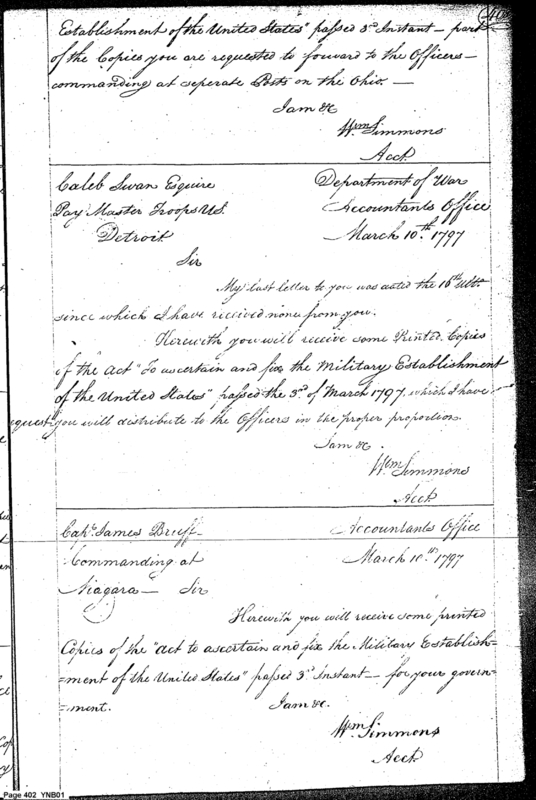 Establishment of the United States" passed 3d Instant — part
of the Copies you are requested to forward to the Officers —
commanding at seperate Posts on the Ohio. —
I am &c
Wm Simmons
Acct
Caleb Swan Esquire
Department of War
Pay Master Troops U.S.
Accountants Office
Detroit
March 10th 1797
Sir
My last letter to you was dated the 16th Ulto
since which I have received none from you.
Herewith you will receive some Printed Copies
of the Act "To ascertain and fix the Military Establishment
of the United States" passed the 3d of March 1797. which I have
request you will distribute to the Officers in the proper proportion.
I am &c.
Wm Simmons
Acct
Capt. James Bruff
Accountants Office
Commanding at
March 10th 1797
Niagara — Sir
Herewith you will receive some printed
Copies of the "act to ascertain and fix the Military Establish=
=ment of the United States" passed 3d Instant — for your govern=
=ment.
I am &c.
Wm Simmons
Acct.
Page 402 YNB01